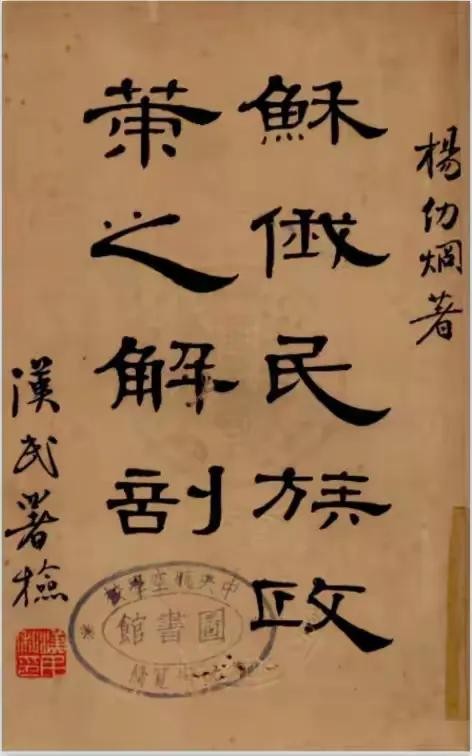 楊幼烱著
穌俄民族政
策之解剖
漢民署檢
中央航空學校
圖書館